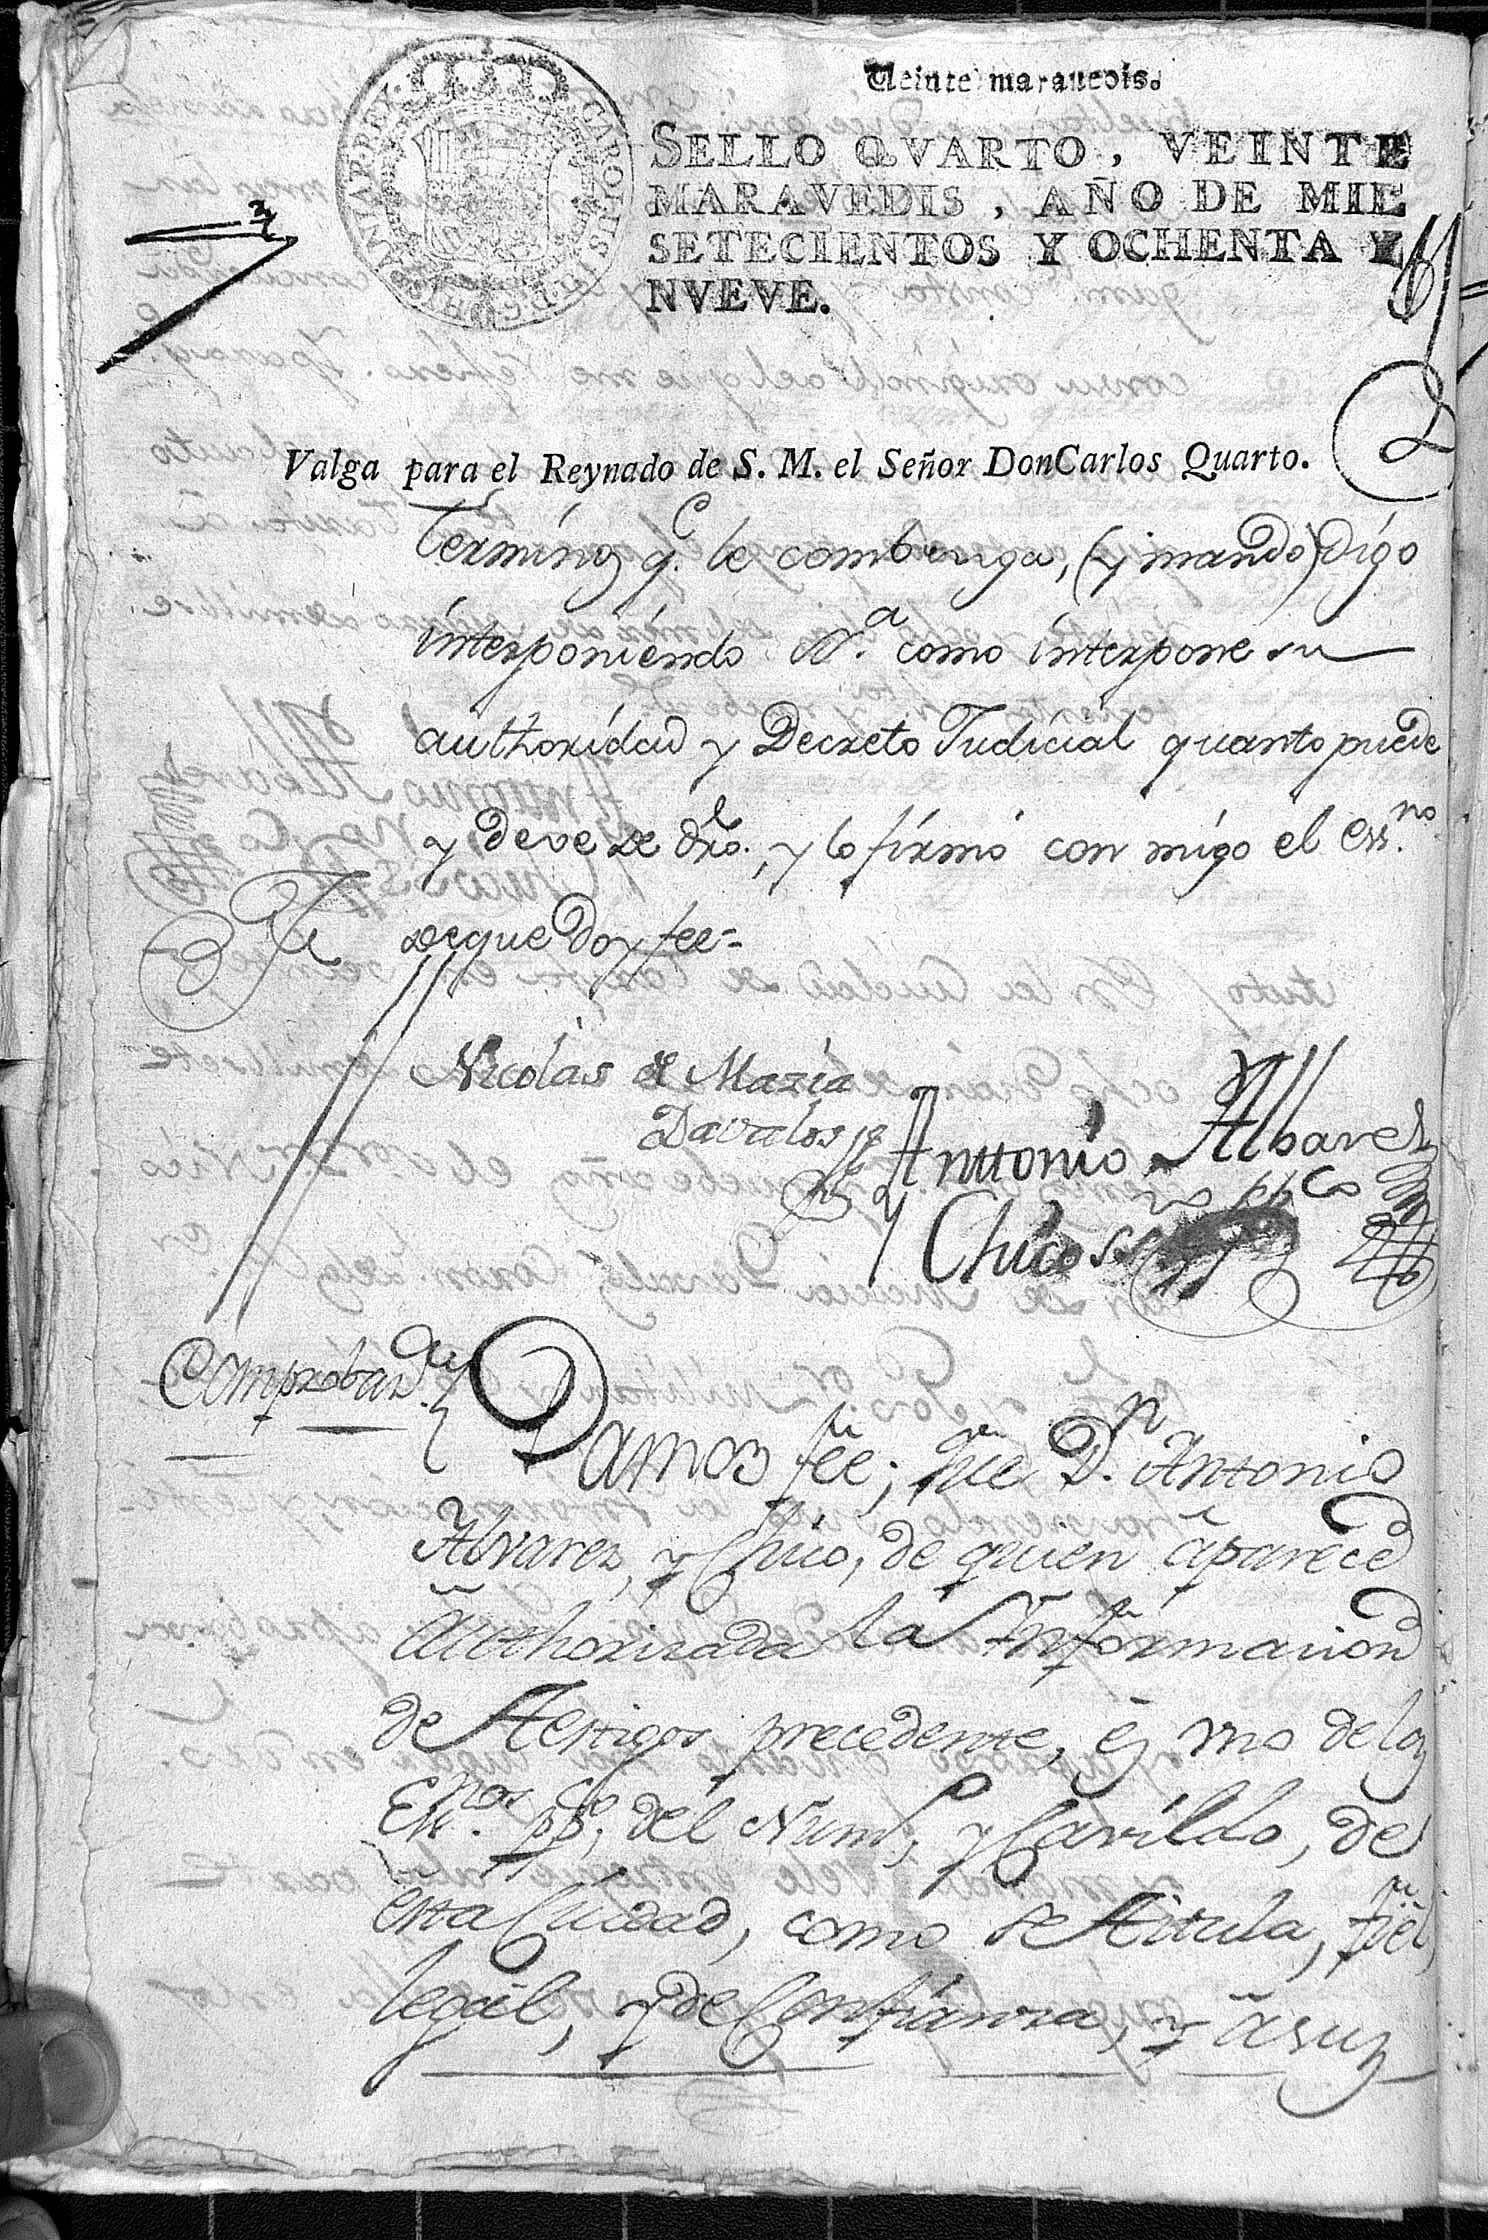 Veinte maravedis.
SELLO QVARTO, VEINTE
MARAVEDIS, AÑO DE MIL
SETECIENTOS Y OCHENTA Y
NVEVE.
Valga para el Reynado de S. M. el Señor Don Carlos Quarto.
terminos q.e le combenga, (y mando) digo
interponiendo S.a como interpone su
authoridad y Decreto Judicial quanto puede
y deve de dro., y lo firmó con migo el Ess.no
de que doy fee=
Nicolás de Mazia
Davalos
Anttonio Albarez
y Chico
Comprobaz.on
Damos fee; que D.n Antonio
Alvarez, y Chico, de quien aparece
authorizada la Informacion
de Testigos precedente, es uno de los
Ess.nos pp.cos del Num.o y Cavildo, de
esta Ciudad, como se titula, fiel
legal, y de Confianza, y a sus